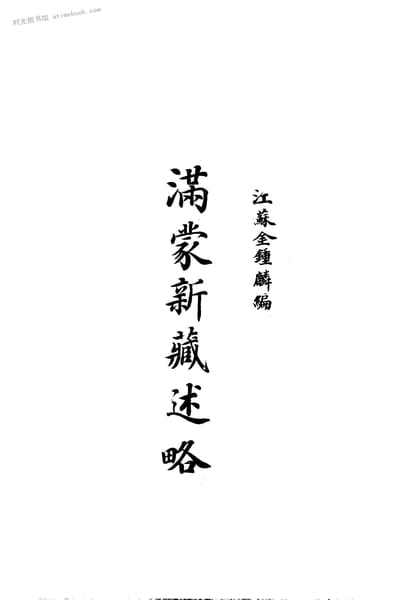 时光图书馆 atimebook.com
江蘇金鍾麟編
滿蒙新藏述略